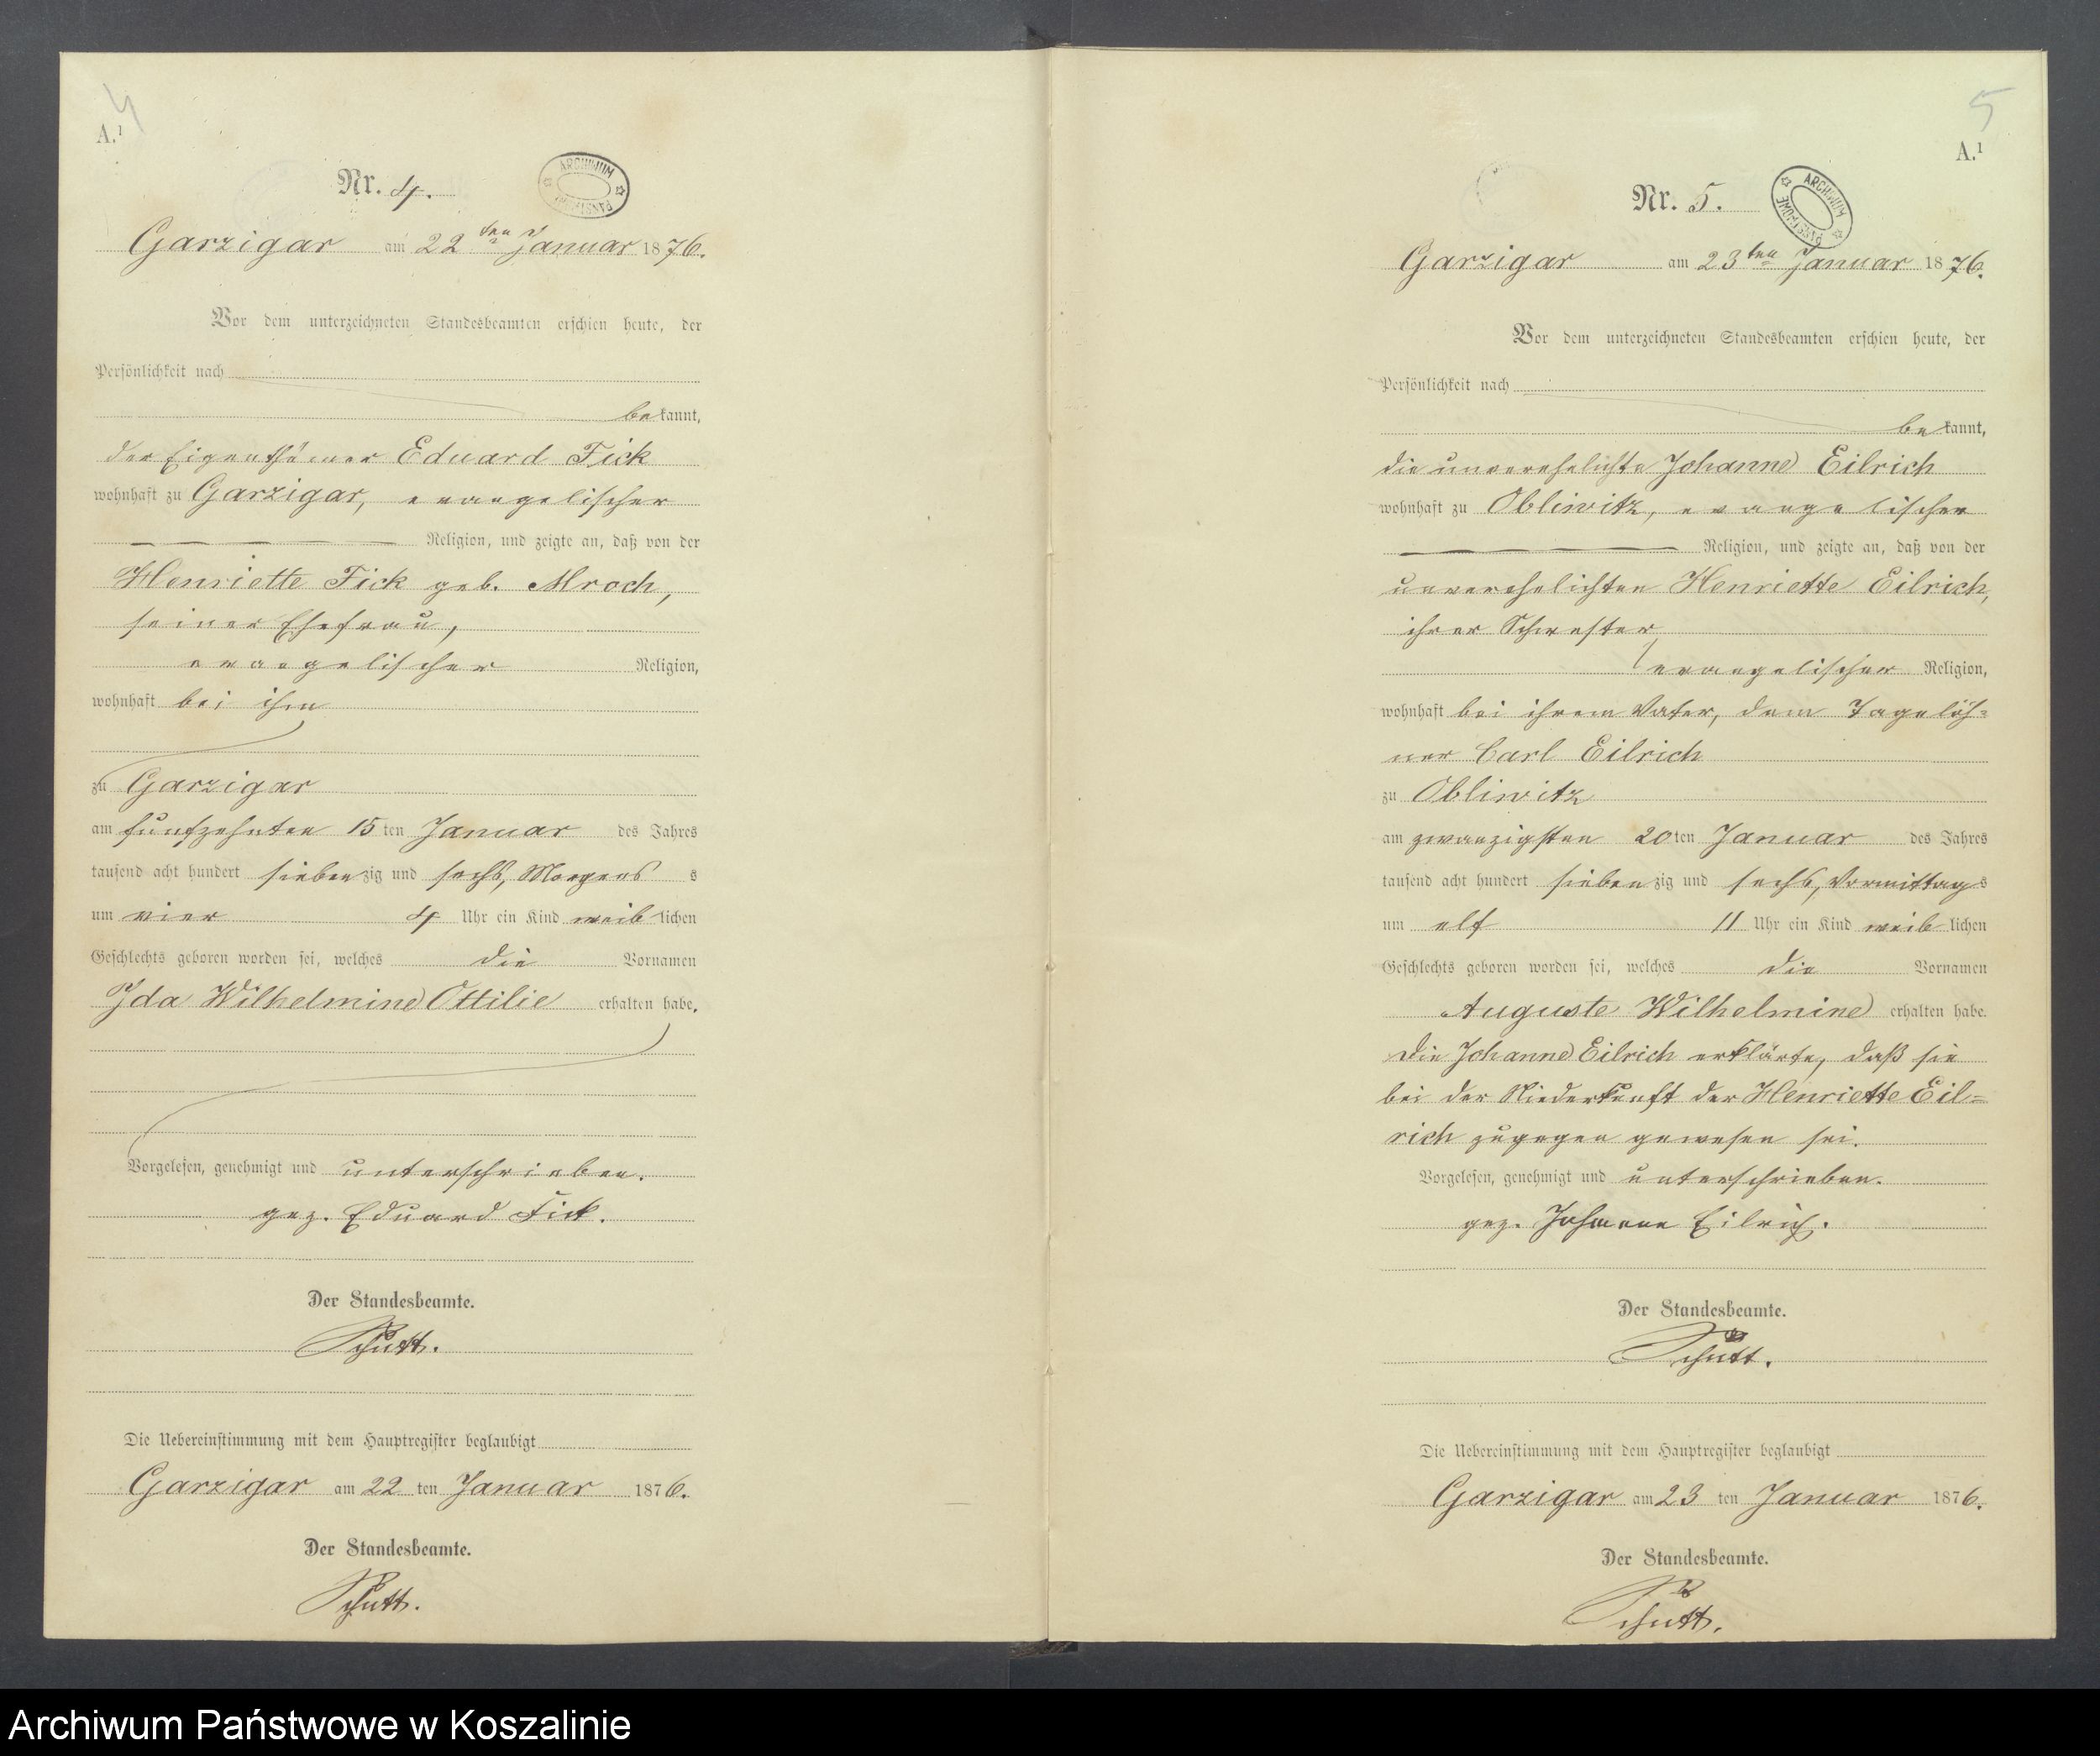 4
A.¹
Nr. 4.
ARCHIWUM PAŃSTWOWE
Garzigar am 22ten Januar 1876.
Vor dem unterzeichneten Standesbeamten erschien heute, der
Persönlichkeit nach
bekannt,
der Eigenthümer Eduard Fick
wohnhaft zu Garzigar, evangelischer
Religion, und zeigte an, daß von der
Henriette Fick geb. Mroch,
seiner Ehefrau,
evangelischer Religion,
wohnhaft bei ihm
zu Garzigar
am fünfzehnten 15ten Januar des Jahres
tausend acht hundert siebenzig und sechs, Morgens s
um vier 4 Uhr ein Kind weiblichen
Geschlechts geboren worden sei, welches die Vornamen
Ida Wilhelmine Ottilie erhalten habe.
Vorgelesen, genehmigt und unterschrieben.
gez. Eduard Fick.
Der Standesbeamte.
Schütt.
Die Uebereinstimmung mit dem Hauptregister beglaubigt
Garzigar am 22ten Januar 1876.
Der Standesbeamte.
Schütt.
5
A.¹
Nr. 5.
ARCHIWUM PAŃSTWOWE
Garzigar am 23ten Januar 1876.
Vor dem unterzeichneten Standesbeamten erschien heute, der
Persönlichkeit nach
bekannt,
die unverehelichte Johanne Eilrich
wohnhaft zu Obliwitz, evangelischer
Religion, und zeigte an, daß von der
unverehelichten Henriette Eilrich,
ihrer Schwester,
evangelischer Religion,
wohnhaft bei ihrem Vater, dem Tagelöh=
ner Carl Eilrich
zu Obliwitz
am zwanzigsten 20ten Januar des Jahres
tausend acht hundert siebenzig und sechs, Vormittags
um elf 11 Uhr ein Kind weiblichen
Geschlechts geboren worden sei, welches die Vornamen
Auguste Wilhelmine erhalten habe.
Die Johanne Eilrich erklärte, daß sie
bei der Niederkunft der Henriette Eil=
rich zugegen gewesen sei.
Vorgelesen, genehmigt und unterschrieben.
gez. Johanne Eilrich.
Der Standesbeamte.
Schütt.
Die Uebereinstimmung mit dem Hauptregister beglaubigt
Garzigar am 23 ten Januar 1876.
Der Standesbeamte.
Schütt.
Archiwum Państwowe w Koszalinie